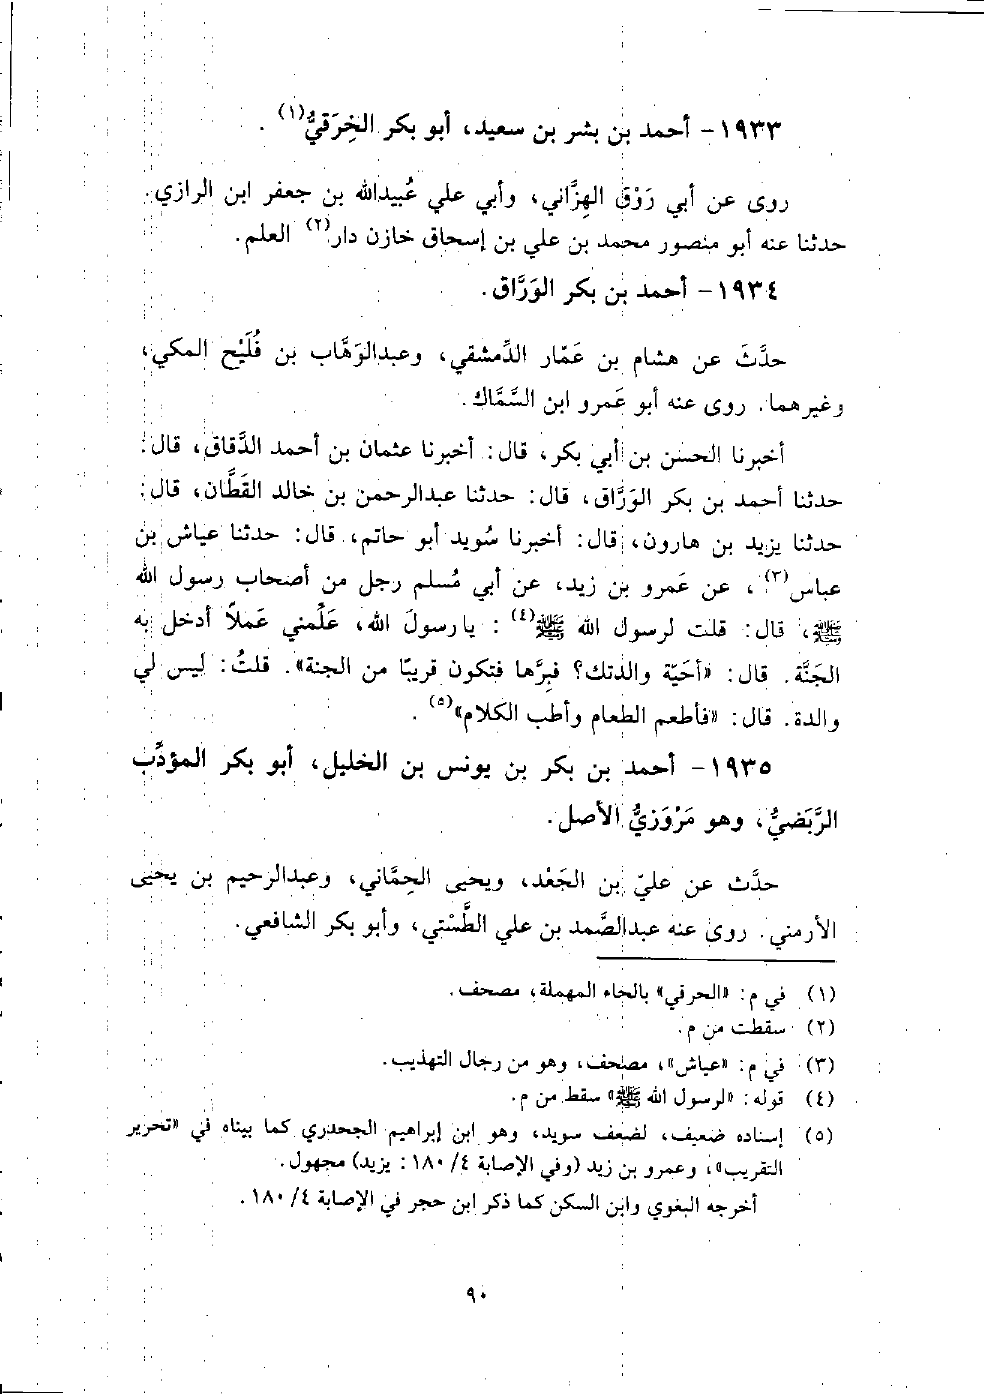 ١٩٣٣- أحمد بن بشر بن سعيد، أبو بكر الخِرَقيُّ(١).
روى عن أبي رَوْق الهِزَّاني، وأبي علي عُبيدالله بن جعفر ابن الرازي.
حدثنا عنه أبو منصور محمد بن علي بن إسحاق خازن دار(٢) العلم.
١٩٣٤- أحمد بن بكر الوَرَّاق.
حدَّثَ عن هشام بن عَمّار الدِّمشقي، وعبدالوَهَّاب بن فُلَيْح المكي،
وغيرهما. روى عنه أبو عَمرو ابن السَّمَّاك.
أخبرنا الحسن بن أبي بكر، قال: أخبرنا عثمان بن أحمد الدَّقاق، قال:
حدثنا أحمد بن بكر الوَرَّاق، قال: حدثنا عبدالرحمن بن خالد القَطَّان، قال:
حدثنا يزيد بن هارون، قال: أخبرنا سُويد أبو حاتم، قال: حدثنا عياش بن
عباس(٣)، عن عَمرو بن زيد، عن أبي مُسلم رجل من أصحاب رسول الله
ﷺ، قال: قلت لرسول الله ﷺ(٤): يارسولَ الله، عَلِّمني عَملاً أدخل به
الجَنَّة. قال: «أحَيّة والدتك؟ فبِرَّها فتكون قريبًا من الجنة». قلتُ: ليس لي
والدة. قال: «فأطعم الطعام وأطب الكلام»(٥).
١٩٣٥- أحمد بن بكر بن يونس بن الخليل، أبو بكر المؤدِّب
الرَّبَضيُّ، وهو مَرْوَزيُّ الأصل.
حدَّث عن عليّ بن الجَعْد، ويحيى الحِمَّاني، وعبدالرحيم بن يحيى
الأرمني. روى عنه عبدالصَّمد بن علي الطَّسْتي، وأبو بكر الشافعي.
(١) في م: «الحرقي» بالحاء المهملة، مصحف.
(٢) سقطت من م.
(٣) في م: «عياش»، مصحف، وهو من رجال التهذيب.
(٤) قوله: «لرسول الله ﷺ» سقط من م.
(٥) إسناده ضعيف، لضعف سويد، وهو ابن إبراهيم الجحدري كما بيناه في «تحرير
التقريب»، وعمرو بن زيد (وفي الإصابة ٤/ ١٨٠: يزيد) مجهول.
أخرجه البغوي وابن السكن كما ذكر ابن حجر في الإصابة ٤/ ١٨٠.
٩٠